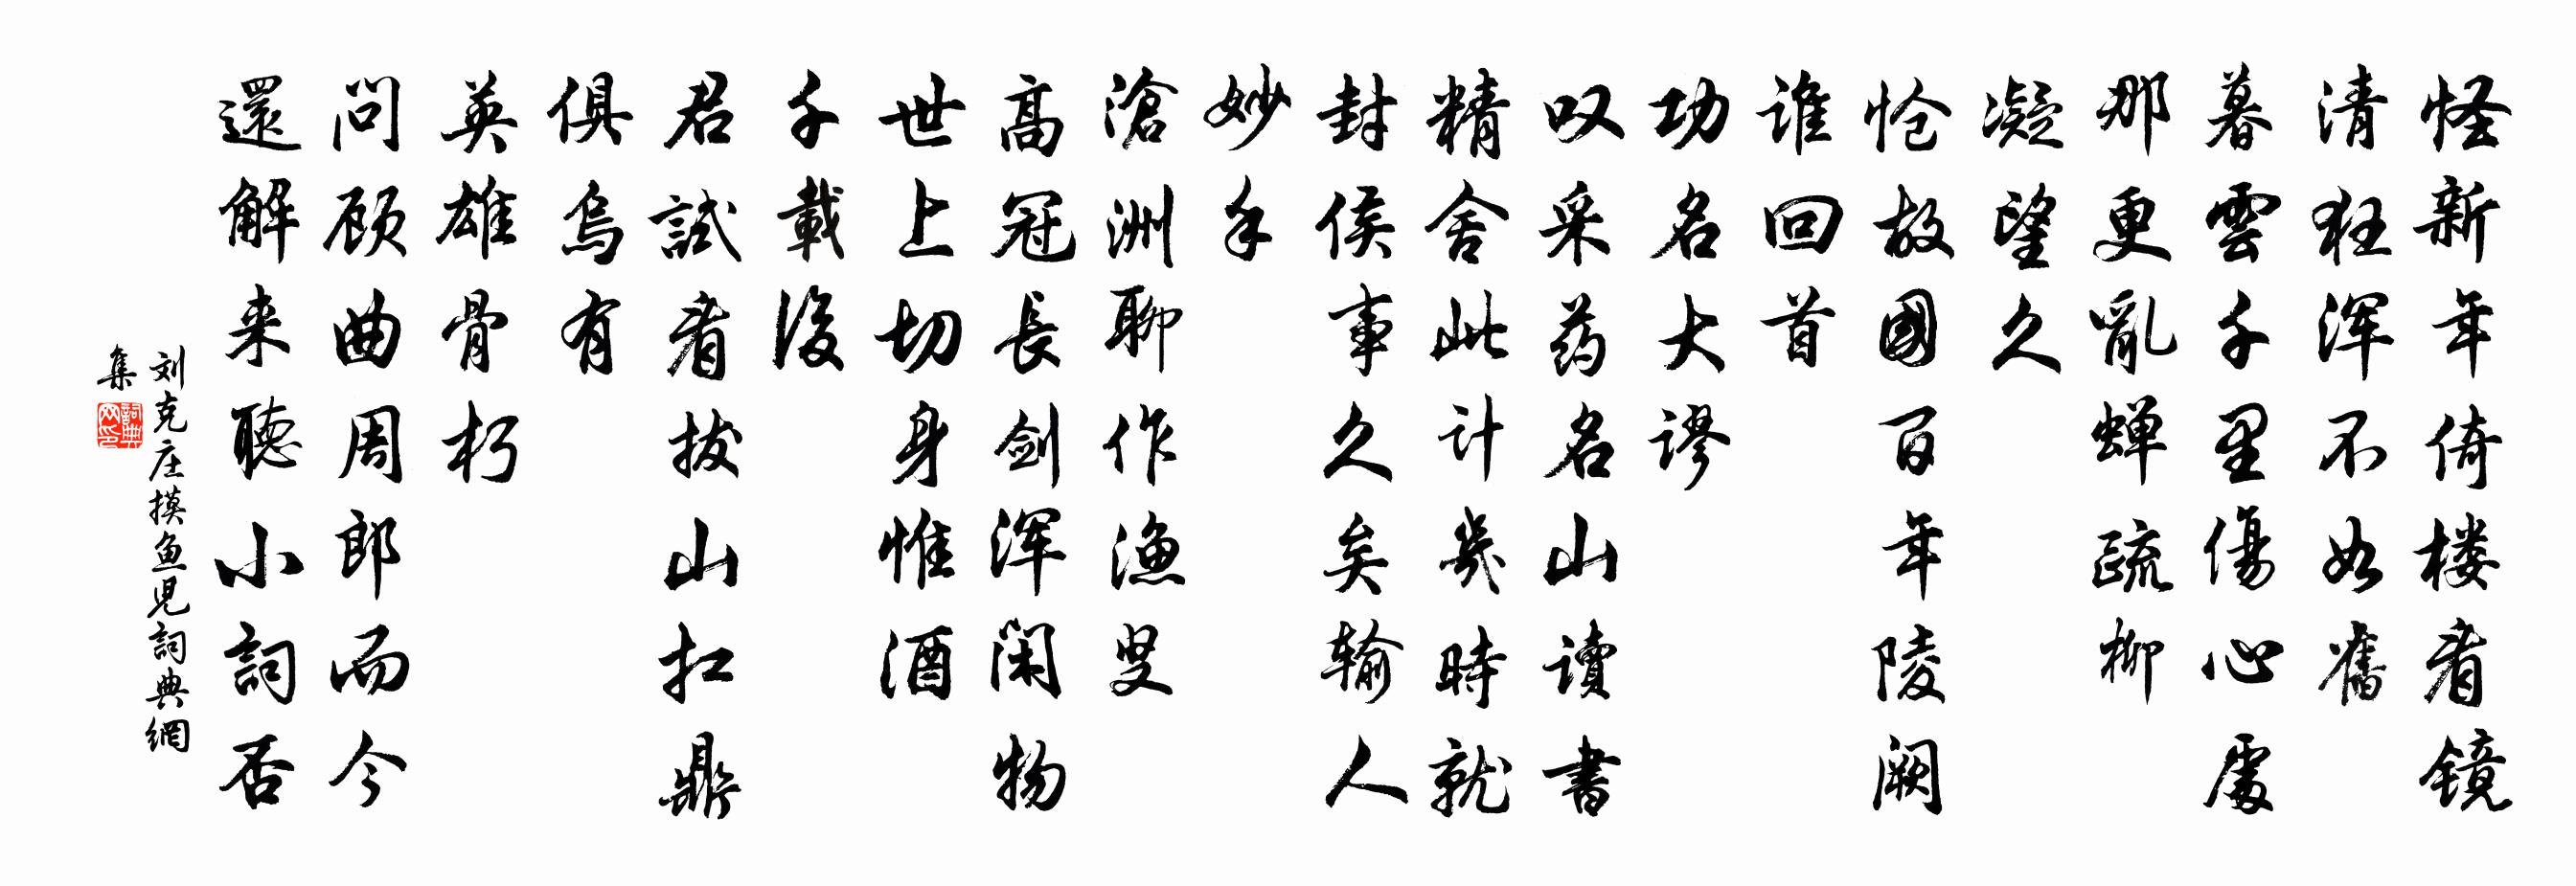 怪新年倚楼看镜
清狂浑不如舊
暮雲千里傷心處
那更亂蝉疏柳
凝望久
怆故國百年陵阙
谁回首
功名大谬
叹采药名山读書
精舍此计幾時就
封侯事久矣输人
妙手
滄洲聊作渔叟
高冠長剑浑闲物
世上切身惟酒
千載後
君試看拔山扛鼎
俱烏有
英雄骨朽
问顾曲周郎而今
還解来聴小詞否
刘克庄摸鱼児詞典網
集
詞典网印